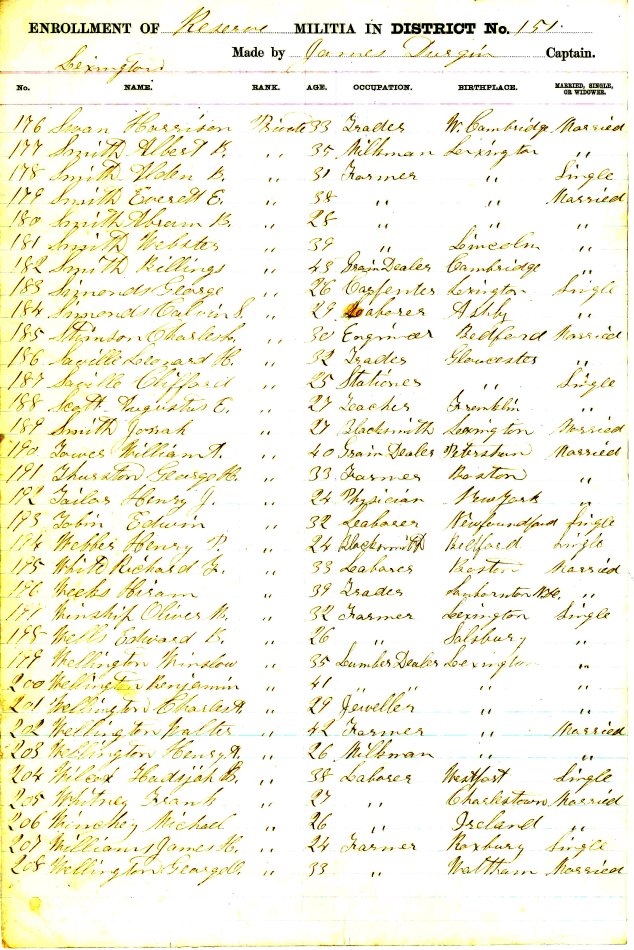 ENROLLMENT OF Reserve MILITIA IN DISTRICT No. 151.
Lexington Made by James Durgin Captain.
No. NAME. RANK. AGE. OCCUPATION. BIRTHPLACE. MARRIED, SINGLE, OR WIDOWER.
176 Swan Harrison Private 33 Trader W. Cambridge Married
177 Smith Albert B. " 35 Milkman Lexington "
178 Smith Alden B. " 31 Farmer " Single
179 Smith Everett E. " 38 " " Married
180 Smith Abram B. " 28 " " "
181 Smith Webster " 39 " Lincoln "
182 Smith Billings " 43 Grain Dealer Cambridge "
183 Simonds George " 26 Carpenter Lexington Single
184 Simonds Calvin S. " 29 Laborer Ashby "
185 Stimson Charles L. " 30 Engineer Bedford Married
186 Saville Leonard H. " 32 Trader Gloucester "
187 Saville Clifford " 25 Stationer " Single
188 Scott Augustus E. " 27 Teacher Franklin "
189 Smith Jonah " 27 Blacksmith Lexington Married
190 Tower William A. " 40 Grain Dealer Petersham Married
191 Thurston George H. " 33 Farmer Boston "
192 Tailor Henry J. " 24 Physician New York "
193 Tobin Edwin " 32 Leaborer Newfoundland Single
194 Webber Henry P. " 24 Blacksmith Bedford Single
195 White Richard F. " 33 Leaborer Boston Married
196 Weeks Hiram " 39 Trader Sanbornton N.H. "
197 Winship Oliver W. " 32 Farmer Lexington Single
198 Wells Edward K. " 26 " Salsbury "
199 Wellington Winslow " 35 Lumber Dealer Lexington "
200 Wellington Benjamin " 41 " " " "
201 Wellington Charles A. " 29 Jeweller " "
202 Wellington Walter " 42 Farmer " Married
203 Wellington Henry A. " 26 Milkman " "
204 Wilcox Hadijah B. " 38 Laborer Westport Single
205 Whitney Frank " 27 " Charlestown Married
206 Winchey Michael " 26 " Ireland "
207 Williams James H. " 24 Farmer Roxbury Single
208 Wellington George O. " 33 " Waltham Married